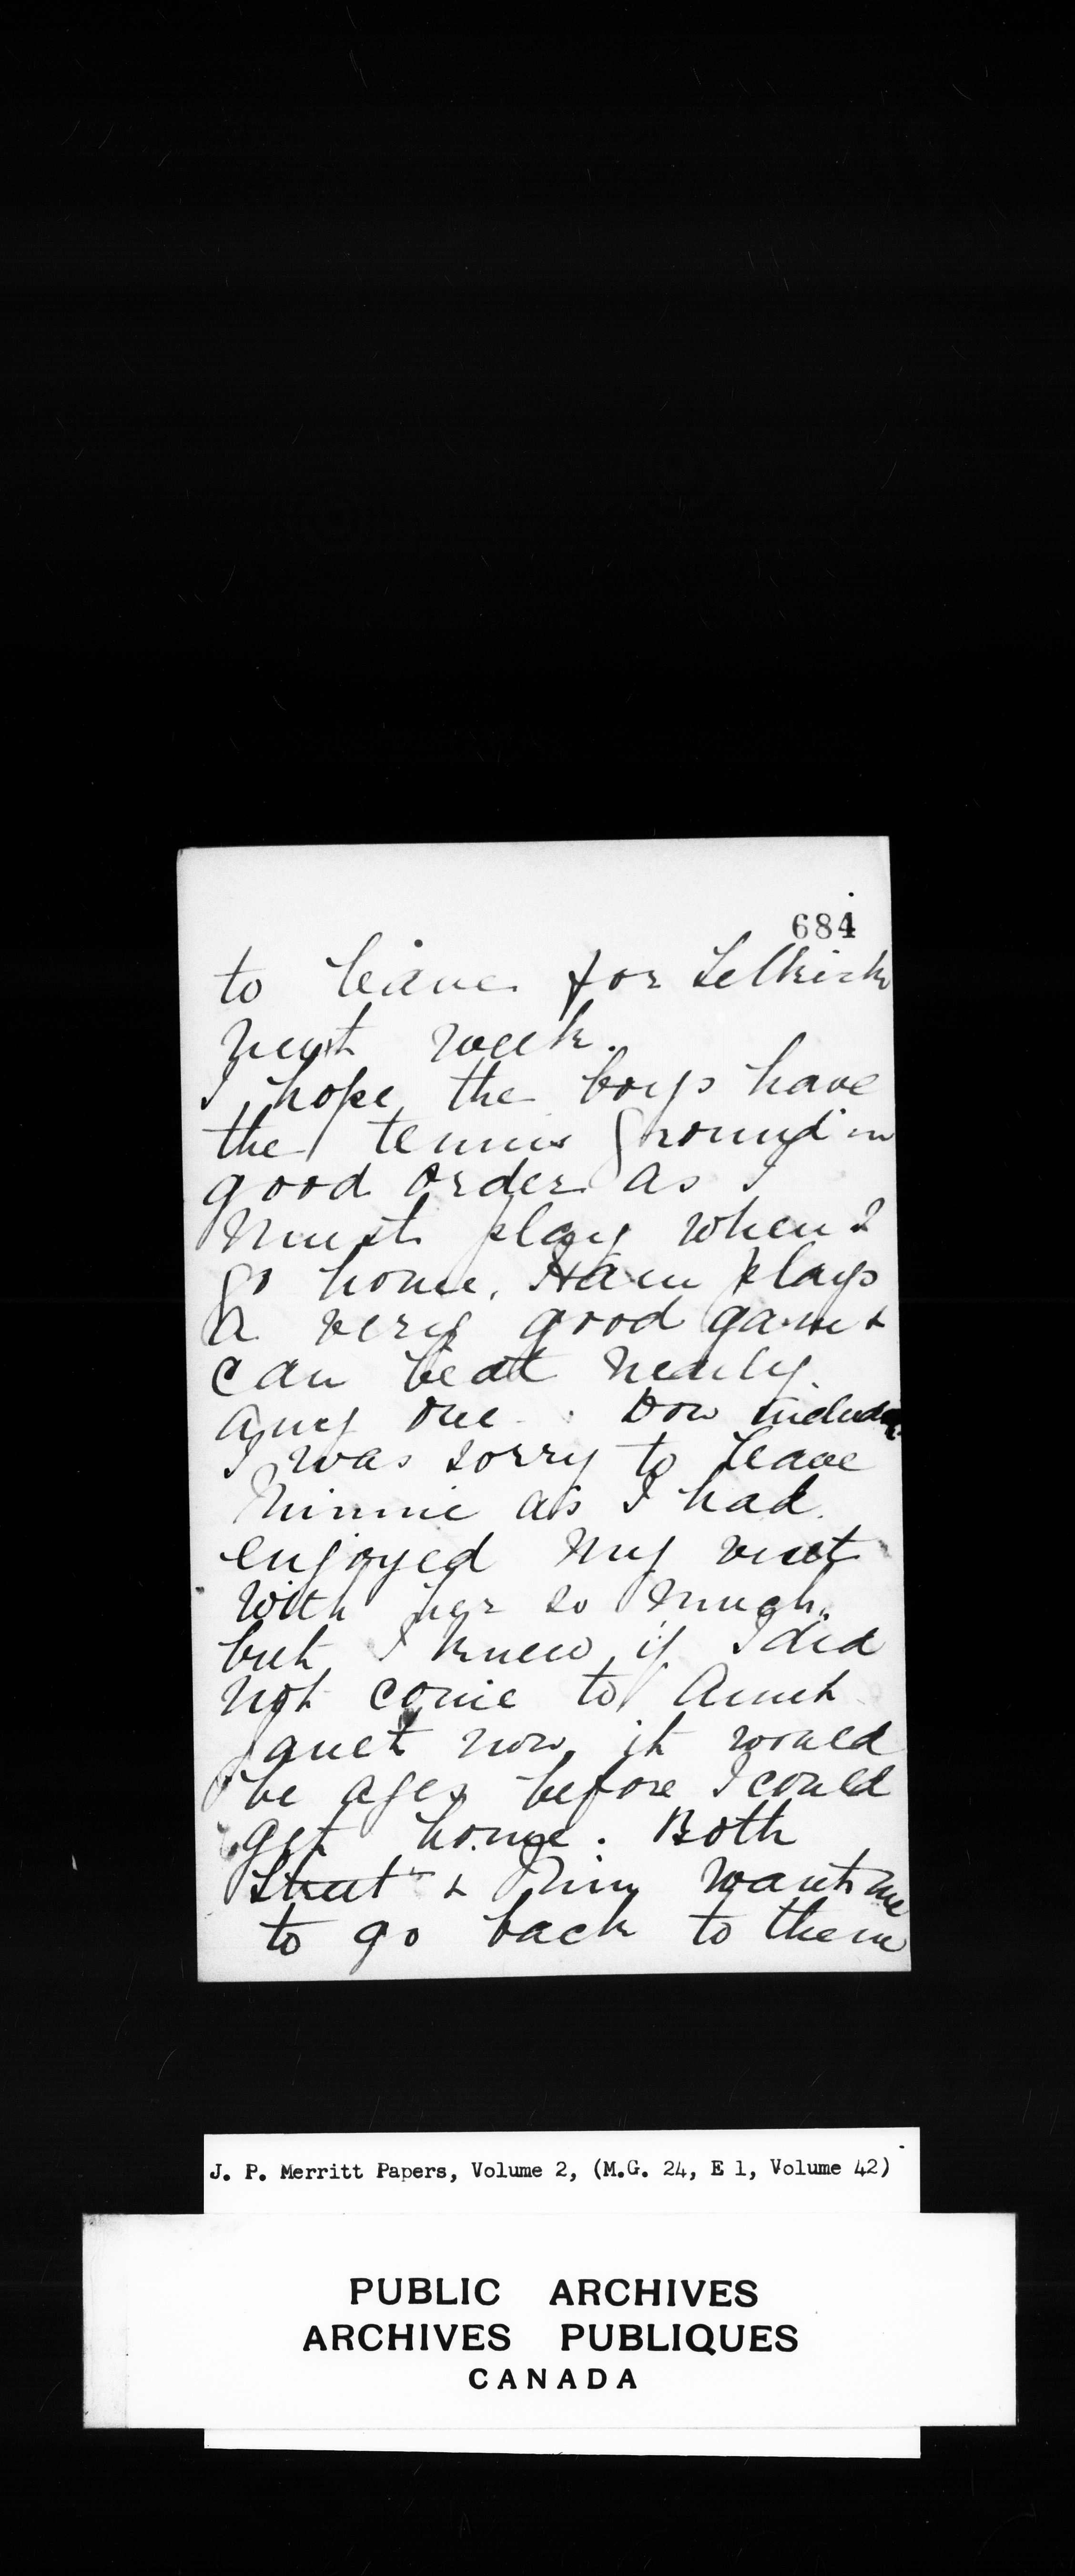 684
to leave for Selkirk
next week.
I hope the boys have
the tennis ground in
good order as I
must play when I
go home. Ham plays
a very good game &
can beat nearly
any one. Dow included
I was sorry to leave
Minnie as I had
enjoyed my visit
with her so much.
but I knew if I did
not come to Aunt
Janet now it would
be ages before I could
get home. Both
& Min want me
to go back to them
J. P. Merritt Papers, Volume 2, (M.G. 24, E 1, Volume 42)
PUBLIC ARCHIVES
ARCHIVES PUBLIQUES
CANADA